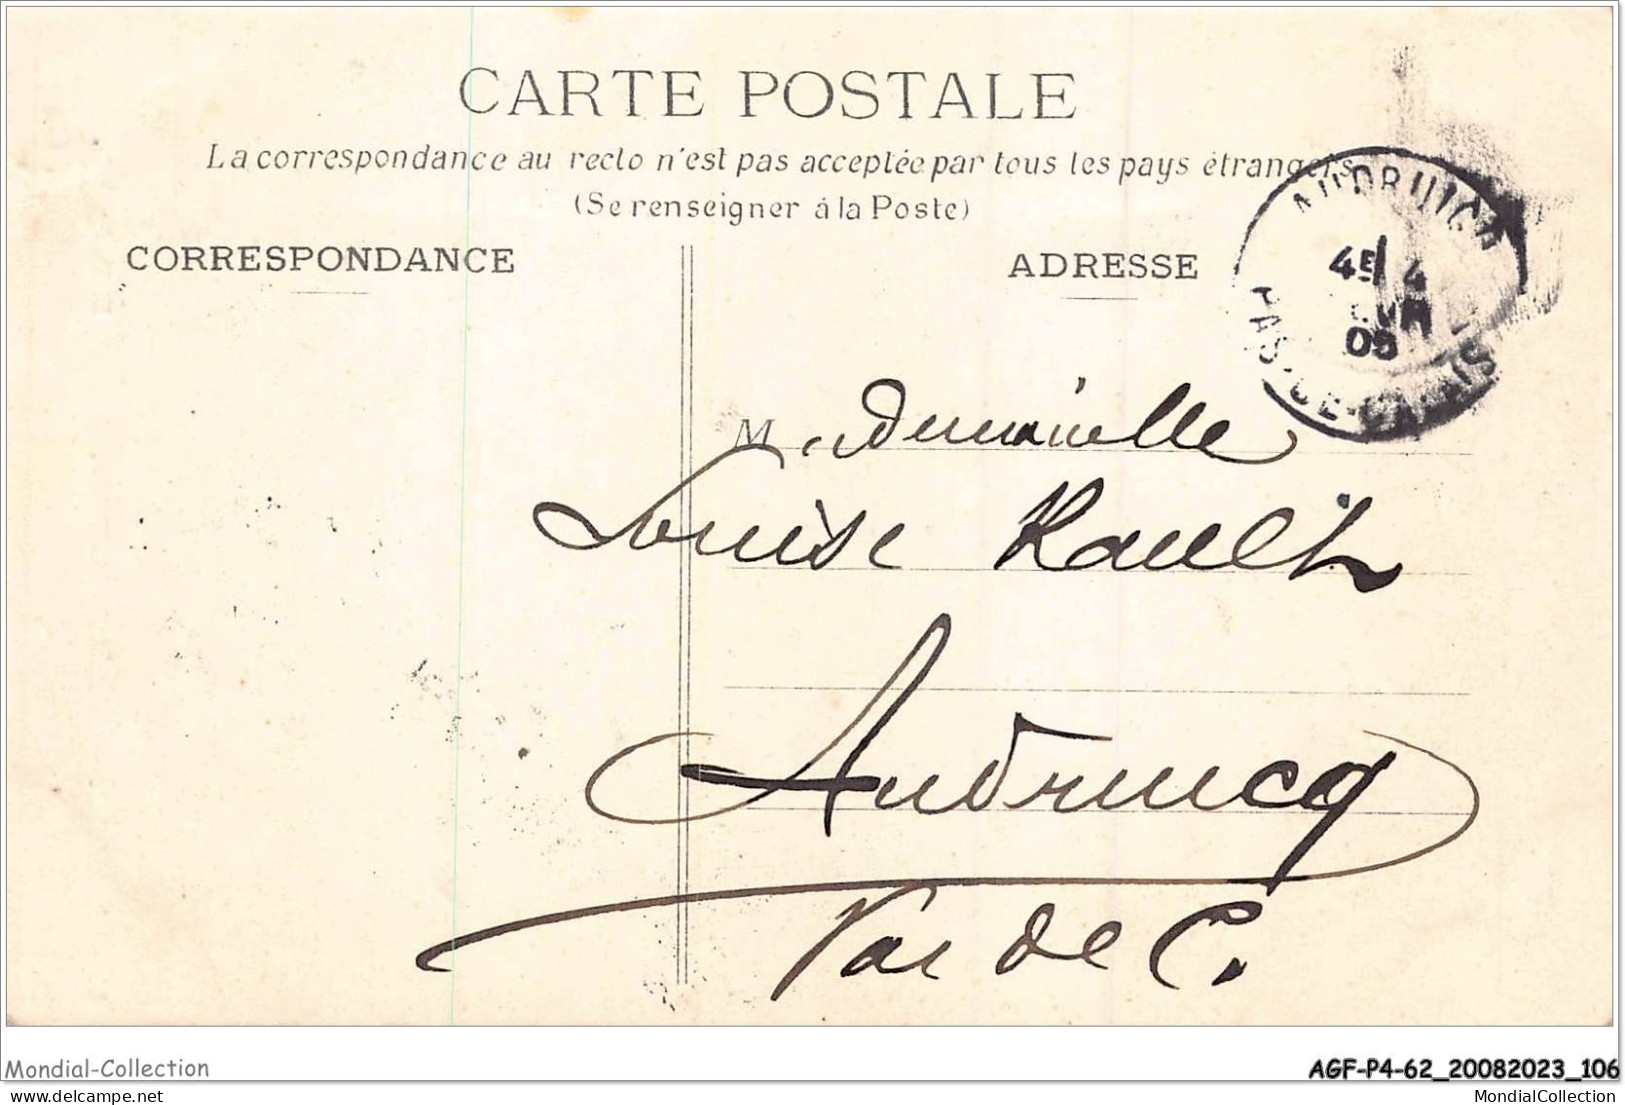 CARTE POSTALE
La correspondance au recto n'est pas acceptée par tous les pays étrangers
(Se renseigner à la Poste)
CORRESPONDANCE
ADRESSE
AUDRUICQ
4E 4
AVR
05
PAS-DE-CALAIS
Mademoiselle
Louise
Audruicq
Pas de C.
Mondial-Collection
AGF-P4-62_20082023_106
delcampe.net
MondialCollection